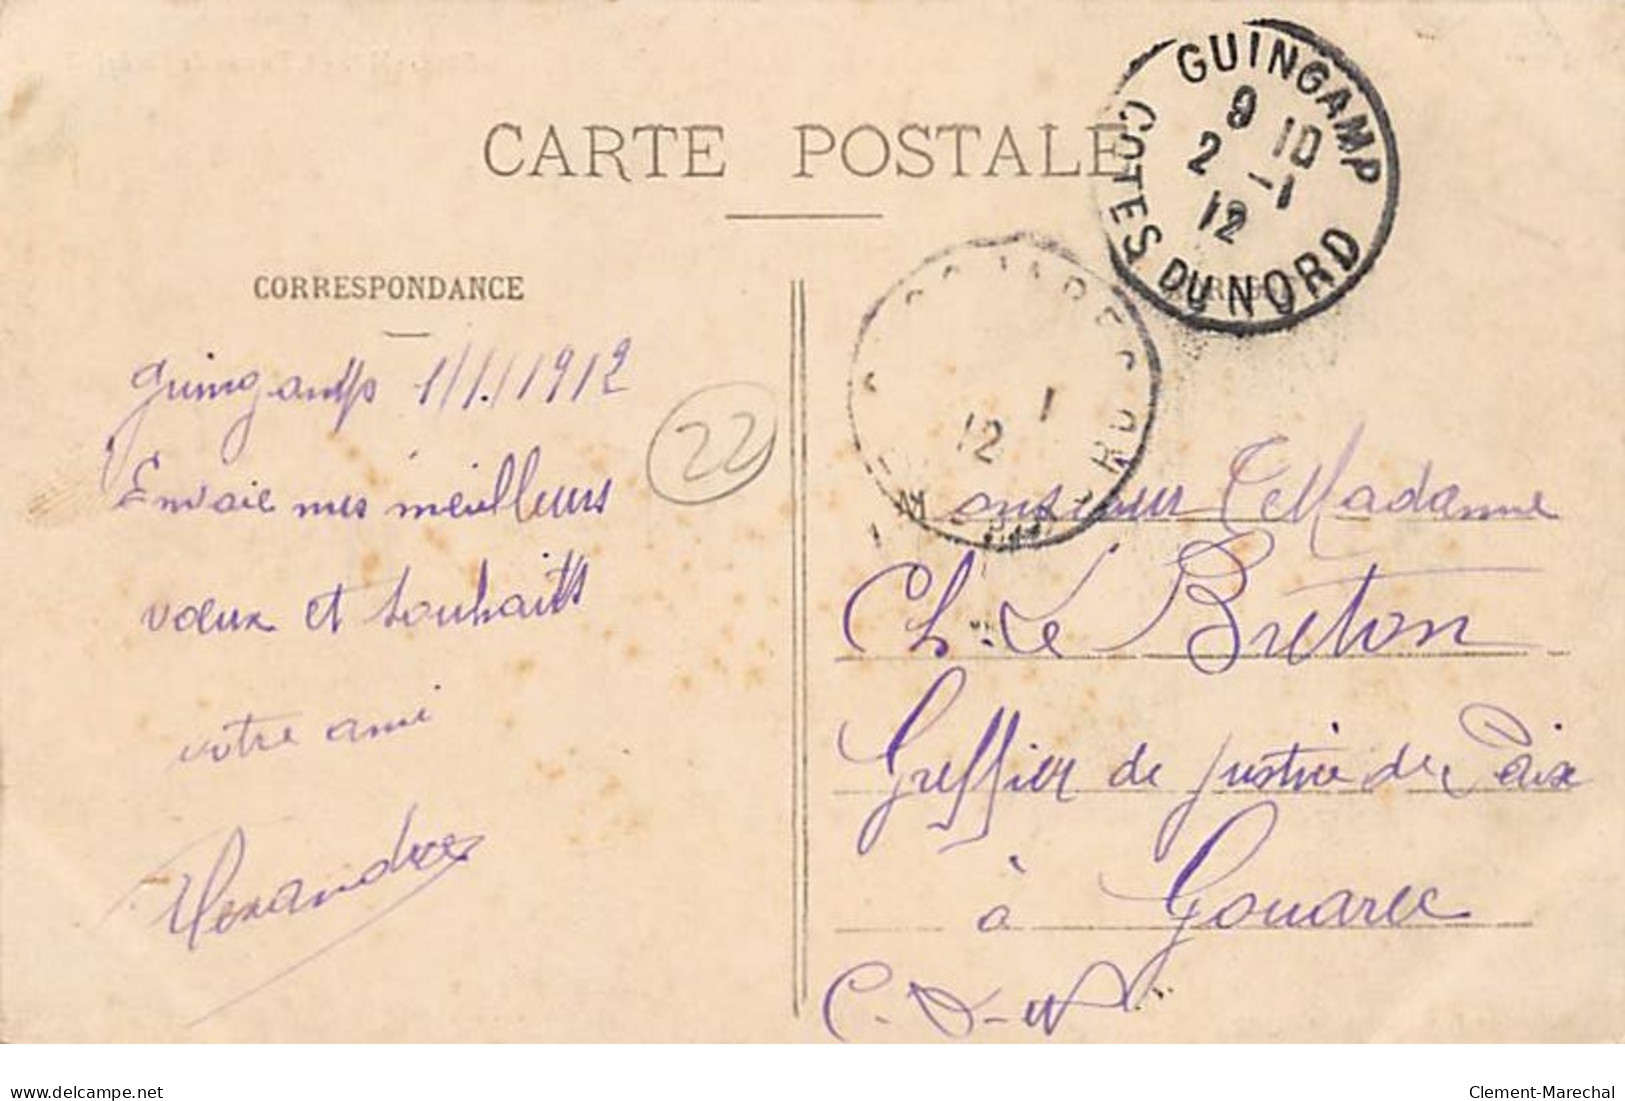 CARTE POSTALE
GUINGAMP
COTES DU NORD
9 10
2 -1
12
CORRESPONDANCE
Guingamp 1/1/1912
Envoie mes meilleurs
vœux et souhaits
votre ami
Alexandre
22
1
12
Monsieur & Madame
Ch. Le Breton
Greffier de justice de Paix
à Gouarec
C-D-N
delcampe.net
Clement-Marechal